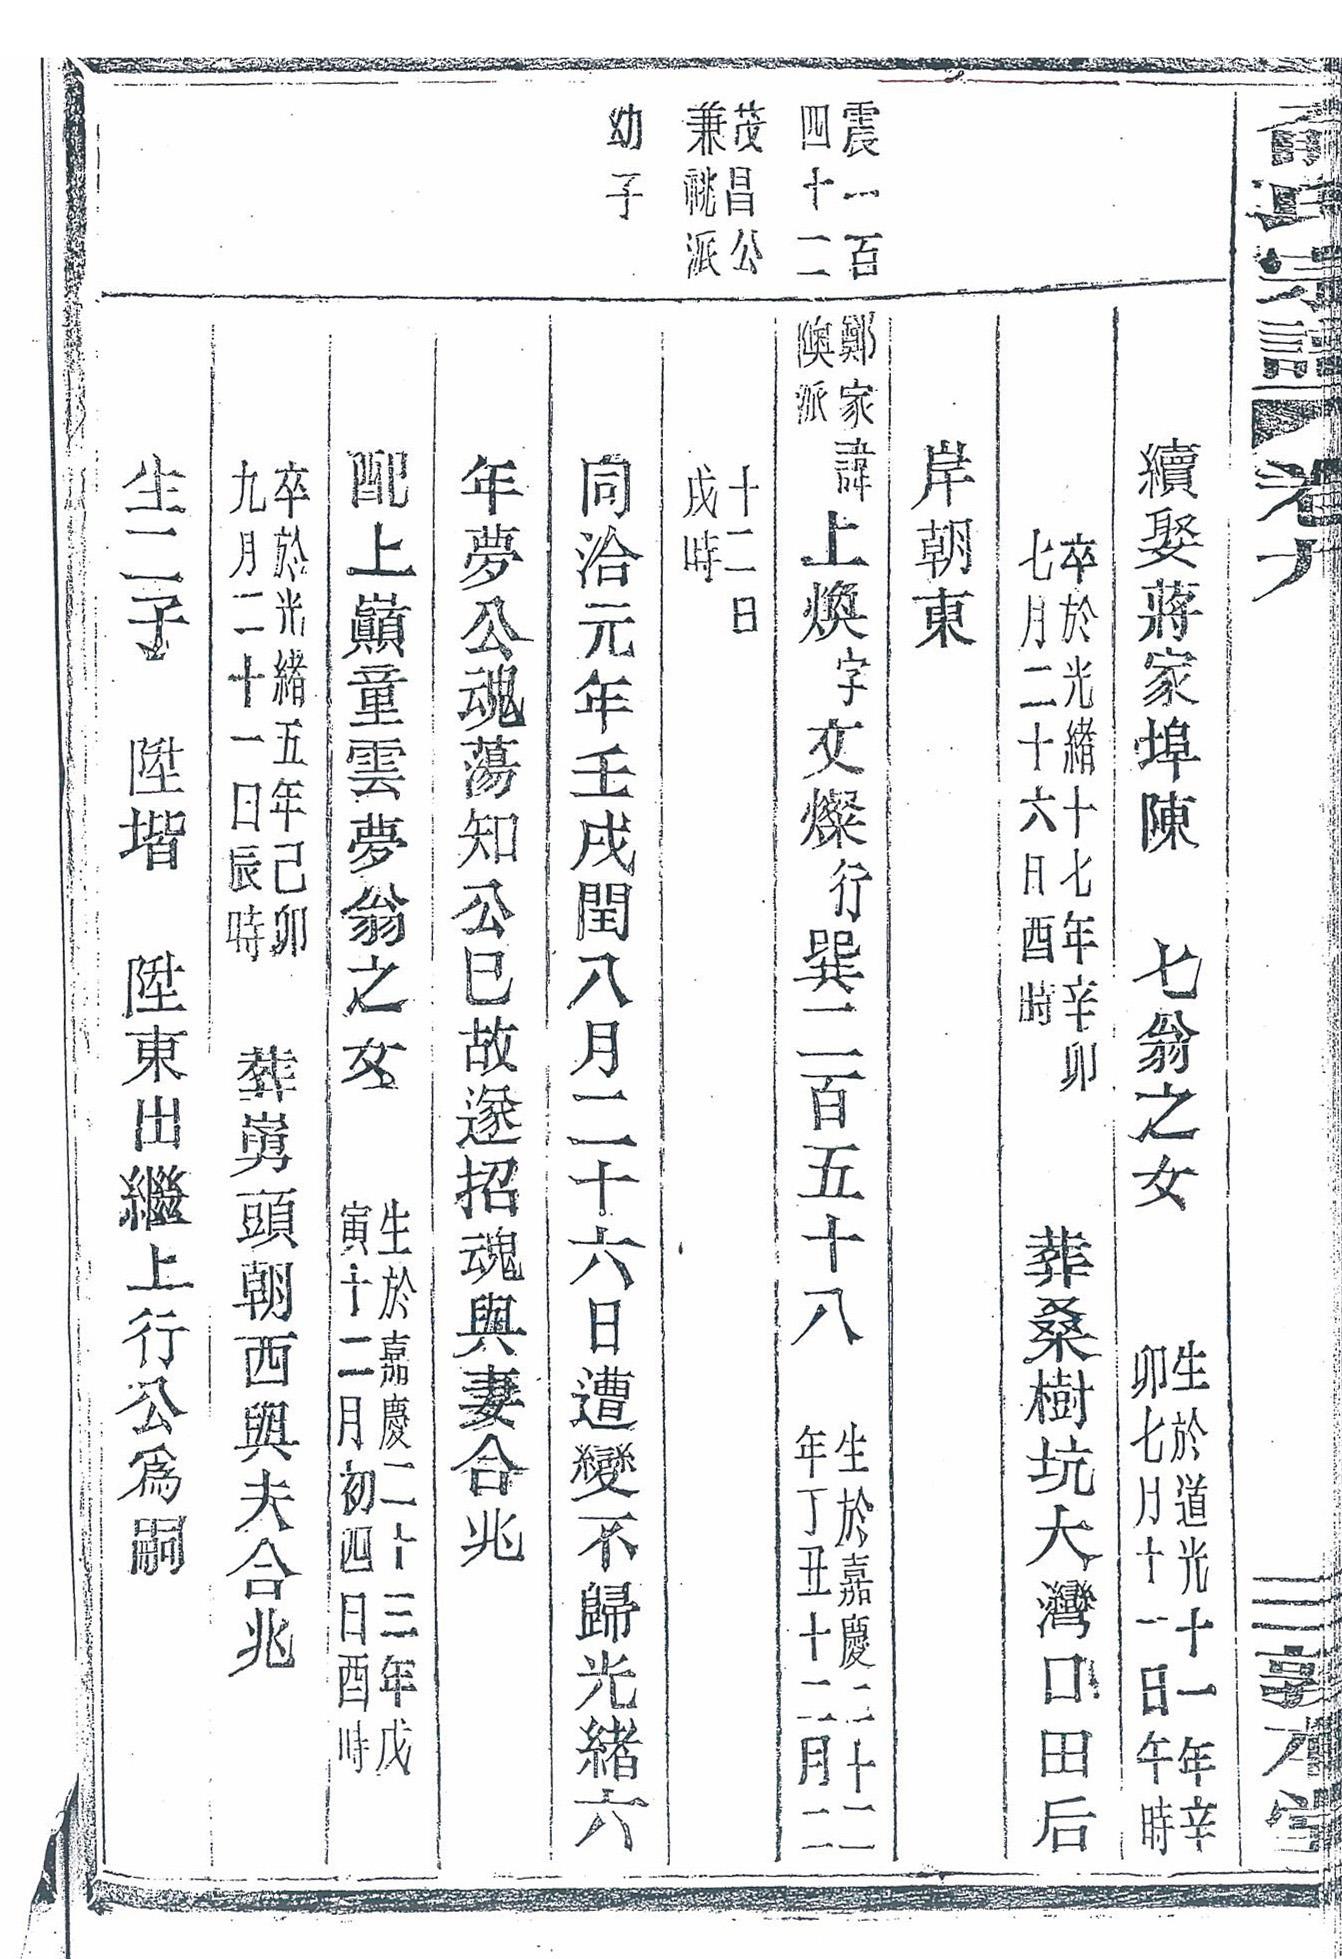 氏宗譜 卷九
續娶蔣家埠陳 七翁之女 生於道光十一年辛
卯七月十一日午時
卒於光緒十七年辛卯
七月二十六日酉時 葬桑樹坑大灣口田后
岸朝東
震一百
四十二
鄭家
隩派 諱上煥字文燦行巽二百五十八 生於嘉慶二十二
年丁丑十二月二
茂昌公
兼祧派
十二日
戌時
幼子
同治元年壬戌閏八月二十六日遭變不歸光緒六
年夢公魂蕩知公已故遂招魂與妻合兆
配上巓童雲夢翁之女 生於嘉慶二十三年戊
寅十二月初四日酉時
卒於光緒五年己卯
九月二十一日辰時 葬嶴頭朝西與夫合兆
生二子 陞堦 陞東出繼上行公爲嗣